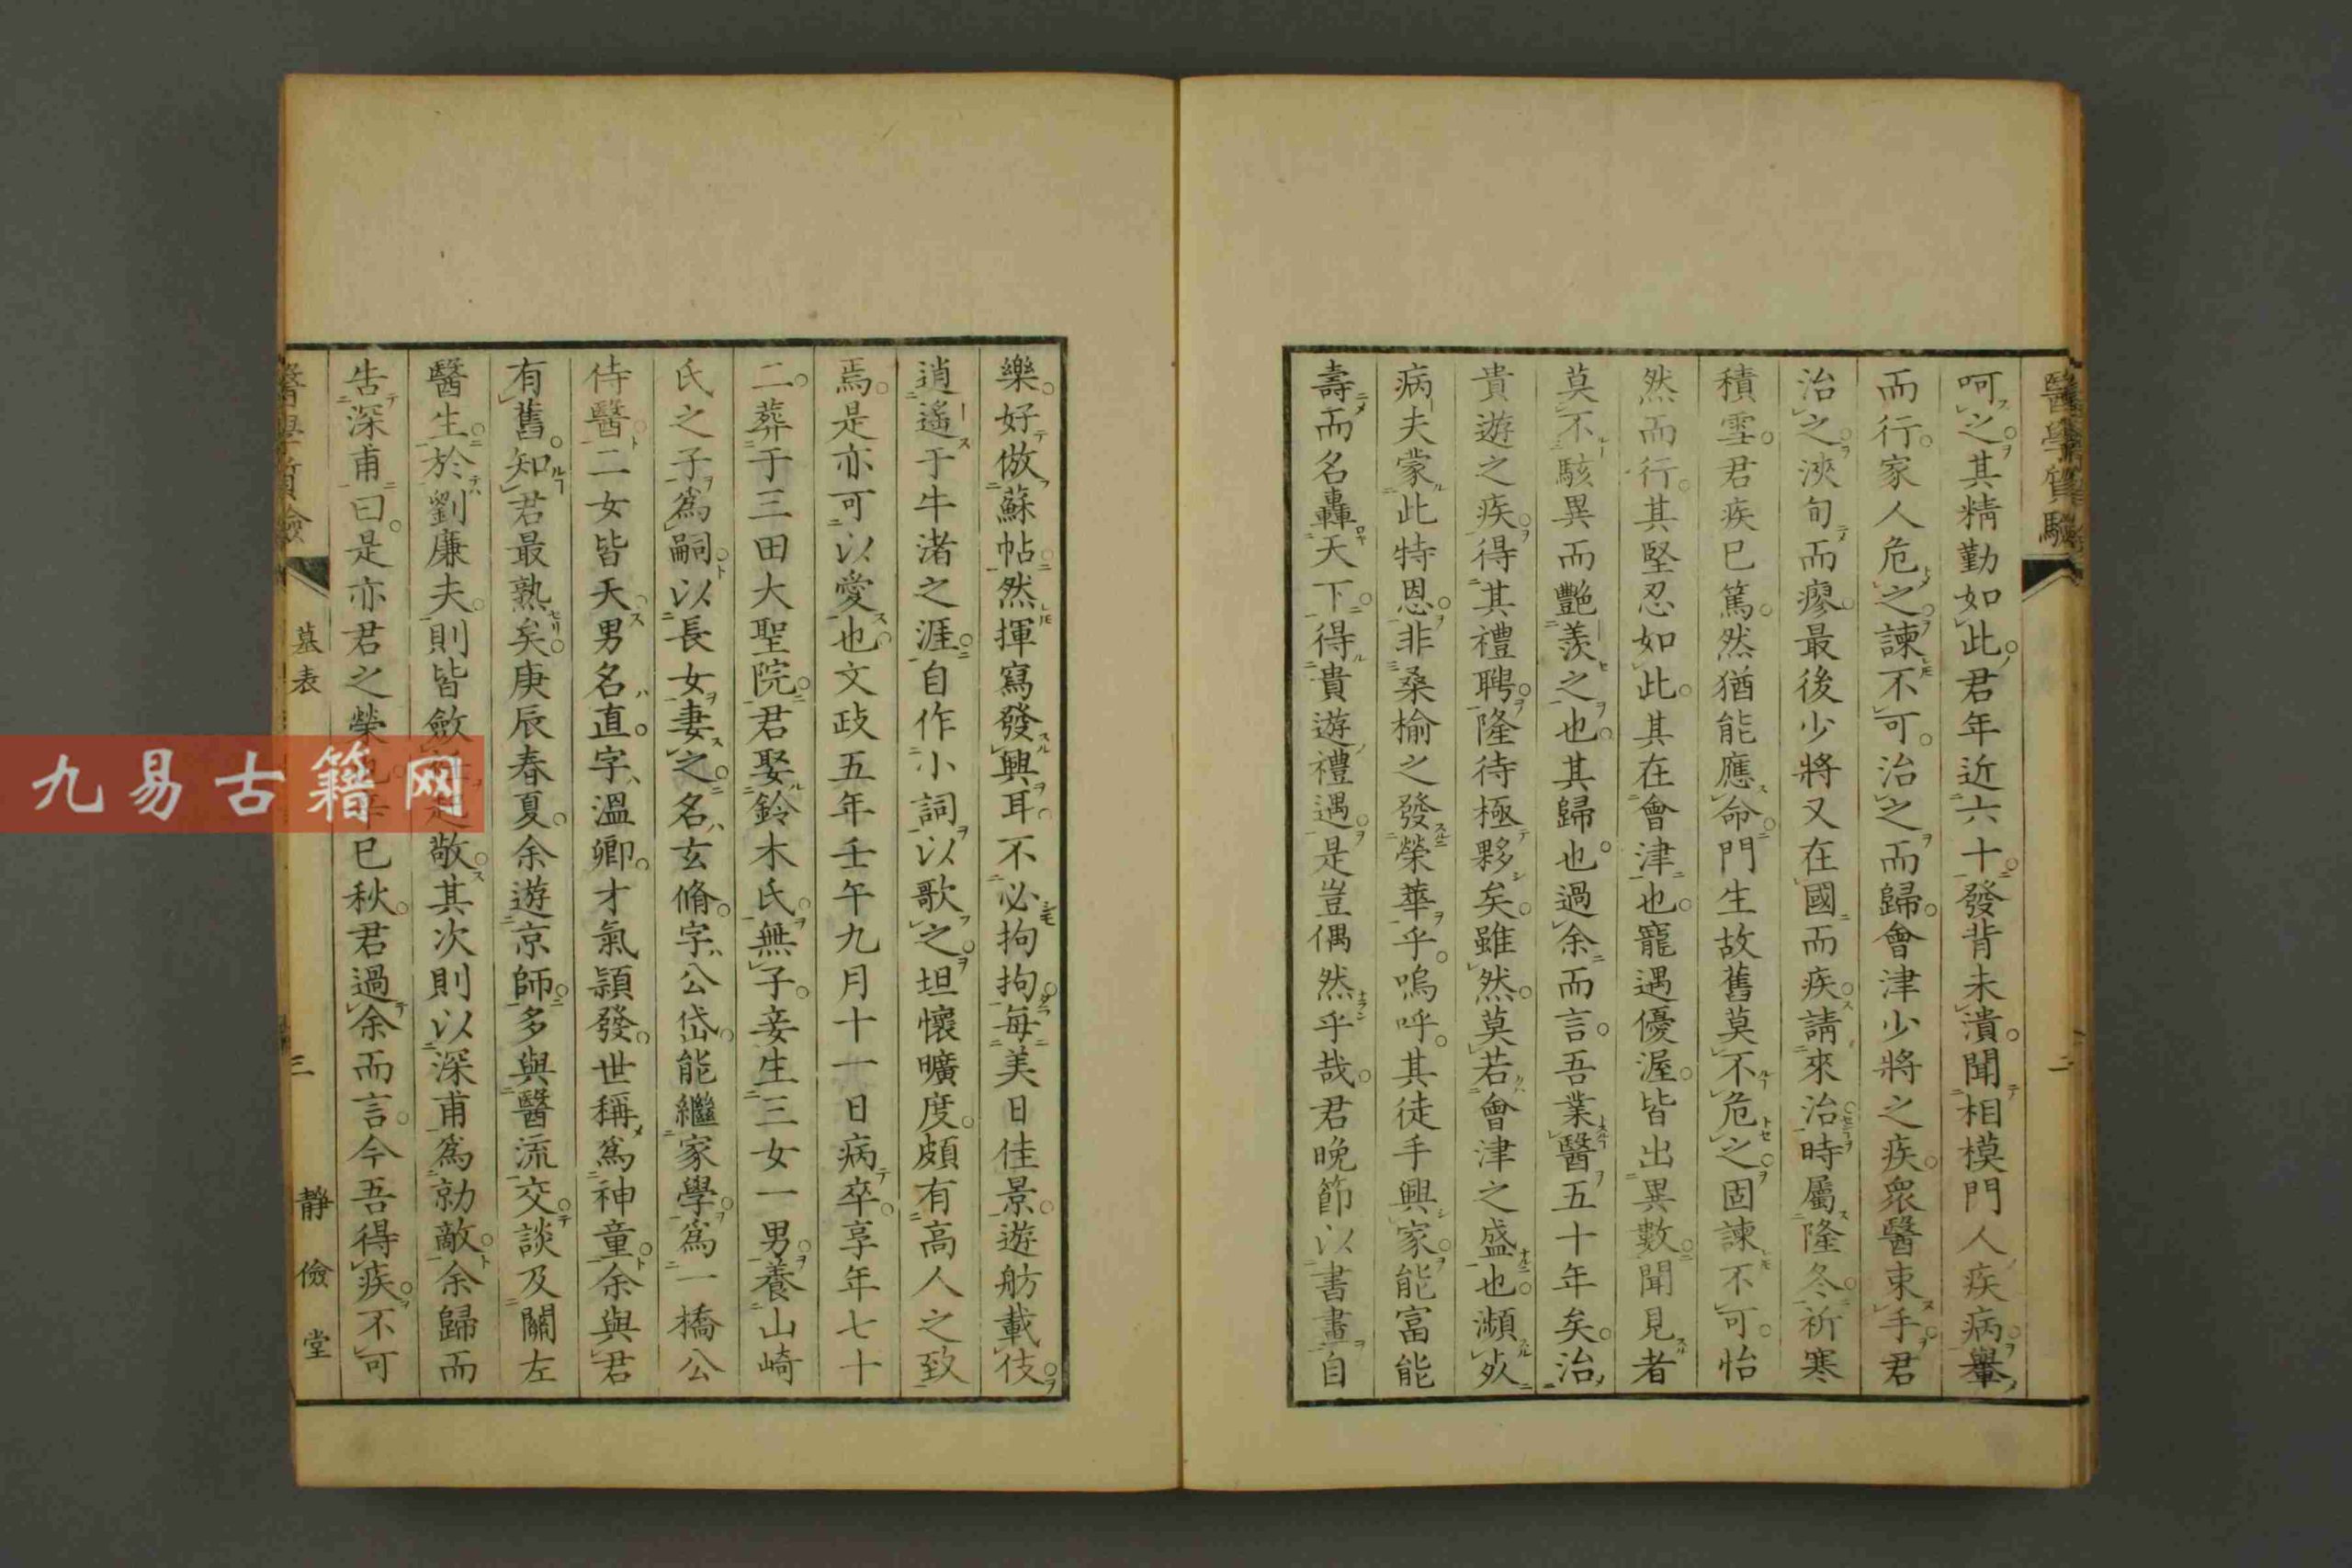 醫學質驗
二
呵之其精勤如此君年近六十發背未潰聞相模門人疾病轝
而行家人危之諫不可治之而歸會津少將之疾眾醫束手君
治之浹旬而瘳最後少將又在國而疾請來治時屬隆冬祈寒
積雪君疾已篤然猶能應命門生故舊莫不危之固諫不可怡
然而行其堅忍如此其在會津也寵遇優渥皆出異數聞見者
莫不駭異而艷羨之也其歸也過余而言吾業醫五十年矣治
貴遊之疾得其禮聘隆待極夥矣雖然莫若會津之盛也瀕㱦
病夫蒙此特恩非桑榆之發榮華乎嗚呼其徒手興家能富能
壽而名轟天下得貴遊禮遇是豈偶然乎哉君晚節以書畫自
樂好倣蘇帖然揮寫發興耳不必拘拘每美日佳景遊舫載伎
逍遙于牛渚之涯自作小詞以歌之坦懷曠度頗有高人之致
焉是亦可以愛也文政五年壬午九月十一日病卒享年七十
二葬于三田大聖院君娶鈴木氏無子妾生三女一男養山崎
氏之子為嗣以長女妻之名玄脩字公岱能繼家學為一橋公
侍醫二女皆夭男名直字溫卿才氣穎發世稱為神童余與君
有舊知君最熟矣庚辰春夏余遊京師多與醫流交談及關左
醫生於劉廉夫則皆斂衽起敬其次則以深甫為勍敵余歸而
告深甫曰是亦君之榮也辛巳秋君過余而言今吾得疾不可
醫學質驗
墓表
三
靜儉堂
九易古籍网